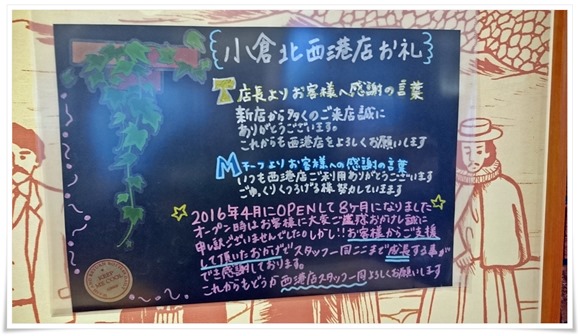 小倉北西港店お礼
T店長よりお客様へ感謝の言葉
新店から多くのご来店誠に
ありがとうございます。
これからも西港店をよろしくお願いします
Mチーフよりお客様への感謝の言葉
いつも西港店ご利用ありがとうございます
ごゆっくりくつろげる様努力しています
☆2016年4月にOPENして8ヶ月になりました☆
オープン時はお客様に大変ご迷惑おかけし誠に
申し訳ございませんでした。しかし!!お客様からご支援
して頂いたおかげで!スタッフ一同ここまで成長する事が
でき感謝しております。
これからもどうか西港店スタッフ一同よろしくお願いします
KEEP